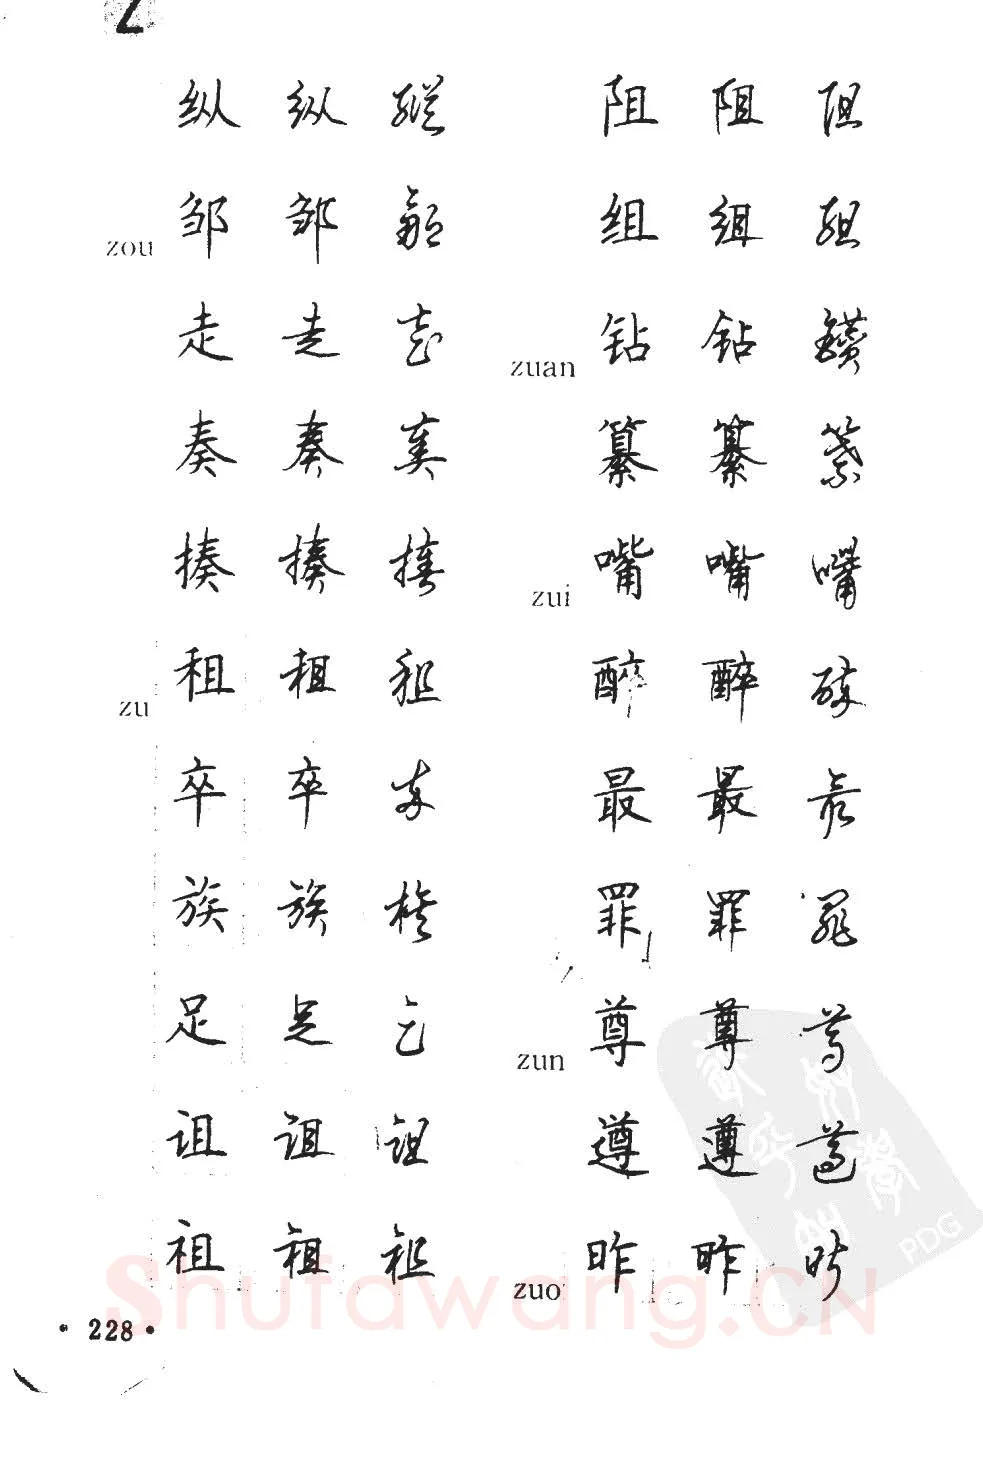 Z
纵 纵 縱
zou 邹 邹 鄒
走 走 走
奏 奏 奏
揍 揍 揍
zu 租 租 租
卒 卒 卒
族 族 族
足 足 足
诅 诅 詛
祖 祖 祖
阻 阻 阻
组 组 組
zuan 钻 钻 鑽
纂 纂 纂
zui 嘴 嘴 嘴
醉 醉 醉
最 最 最
罪 罪 罪
zun 尊 尊 尊
遵 遵 遵
zuo 昨 昨 昨
·228·
Shufawang.CN
PDG